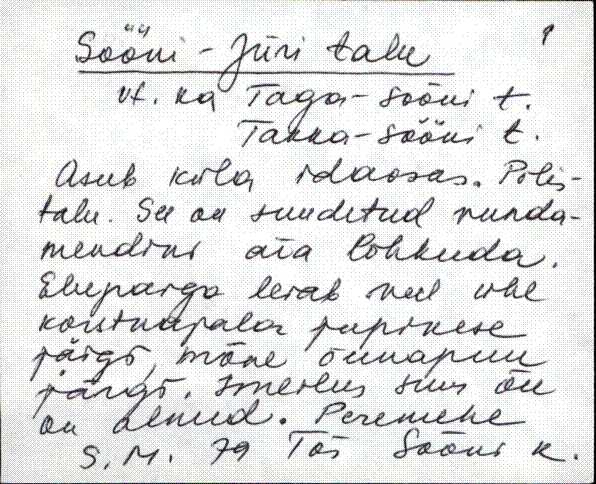 Sööni-Jüri talu
vt. ka Taga-Sööni t.
Takka-Sööni t.
Asub küla idaosas. Põlis-
talu. See on suudetud vunda-
mendini ära lõhkuda.
Elupaiga leiab veel ühe
korstnajala jupikese
järgi, mõne õunapuu
järgi. Imeilus suur õu
on olnud. Peremehe
S. M. 79 Tõs Sööni k.